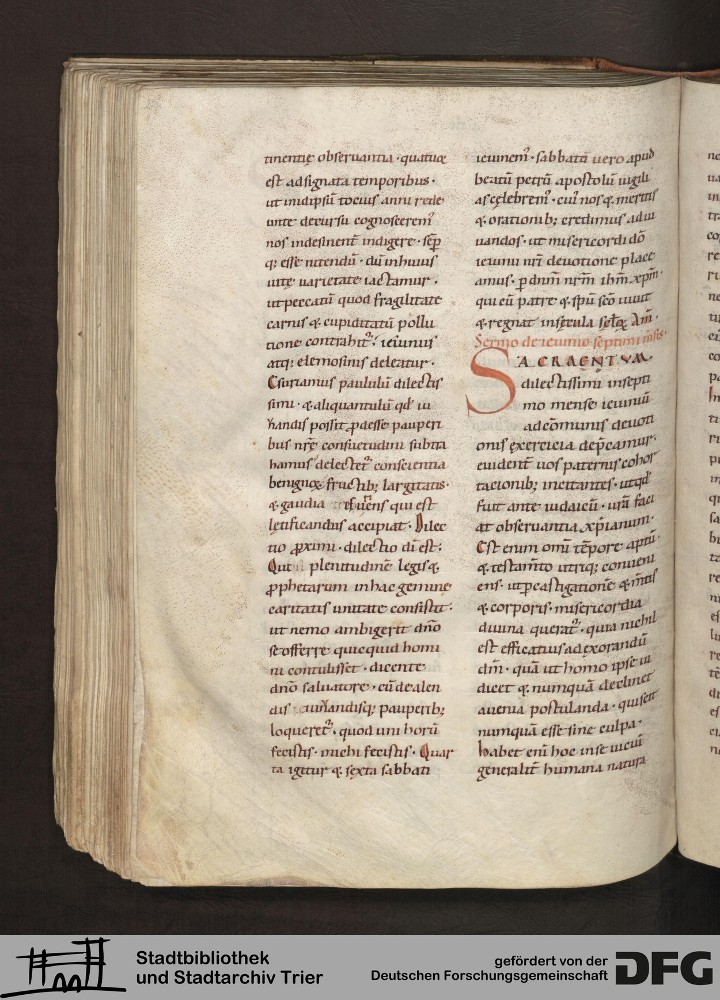 tinentię obseruantia · quattuor
est adsignata temporibus ·
ut inidipsū tocius anni rede
unte decursu cognoscerem᷒
nos indesinent͛ indigere · sēp
q; esse nitendū · dū inhuius
uitę uarietate iactamur ·
ut peccatū quod fragilitate
carnis & cupiditatū pollu
tione contrahit᷒ · ieiuniis
atq; elemosinis deleatur ·
Esuriamus paululū dilectis
simi · & aliquantulū qd̄ iu
uandis possit ꝓdesse pauperi
bus nr̄ę consuetudini subtra
hamus delectet᷒ conscientia
benignoꝝ fructib; largitatis ·
& gaudia qui est
lętificandus accipiat · Dilec
tio ꝓximi · dilectio dī est :
plenitudinē legis &
ꝓphetarum in hac geminę
caritatis unitate consistit :
ut nemo ambigerit dn̄o
se offerre quicquid homi
ni contulisset · dicente
dn̄o saluatore · cū de alen
dis iuuandisq; pauperib;
loqueret᷒ · quod uni horū
fecistis · michi fecistis · Quar
ta igitur & sexta sabbati
ieiunem᷒ · sabbatū uero apud
beatū petrū apostolū uigili
as celebrem᷒ · cui᷒ nos & meritis
& orationib; credimus adiu
uandos · ut misericordi dō
ieiunii nr̄i deuotione place
amus · p dn̄m nr̄m ih̄m xp̄m ·
qui cū patre & spū sc̄o uiuit
& regnat in sęcula sęcl̄oꝝ Am̄ ·
Sermo de ieiunio septimi m̄sis ·
SACRAENTVM
dilectissimi insepti
mo mense ieiuniū
ad cōmunis deuoti
onis exercicia dep̄camur ·
euident͛ uos paternis cohor
tacionib; incitantes · ut qd̄
fuit ante iudaicū · ur̄a faci
at obseruantia xp̄ianum ·
Est enim omī tēpore aptū ·
& testam̄to utriq; conueni
ens · ut p castigationē & m̄tis
& corporis · misericordia
diuina querat᷒ · quia nichil
est efficatius ad exorandū
dm̄ · quā ut homo ipse iu
dicet & numquā declinet
a uenia postulanda · qui scit
numquā esse sine culpa ·
habet eni hoc in se uiciū
generalit͛ humana natura
Stadtbibliothek
und Stadtarchiv Trier
gefördert von der
Deutschen Forschungsgemeinschaft
DFG